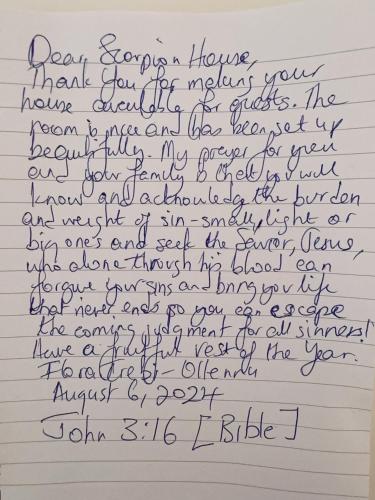 Dear Scorpion House,
Thank you for making your
house available for guests. The
room is nice and has been set up
beautifully. My prayer for you
and your family is that you will
know and acknowledg the burden
and weight of sin - small, light or
big one's and seek the Savior, Jesus,
who alone through his blood can
forgive your sins and bring you life
that never ends so you can escape
the coming judgment for all sinners!
Have a fruitful rest of the Year.
Ollennu
August 6, 2024
John 3:16 [Bible]